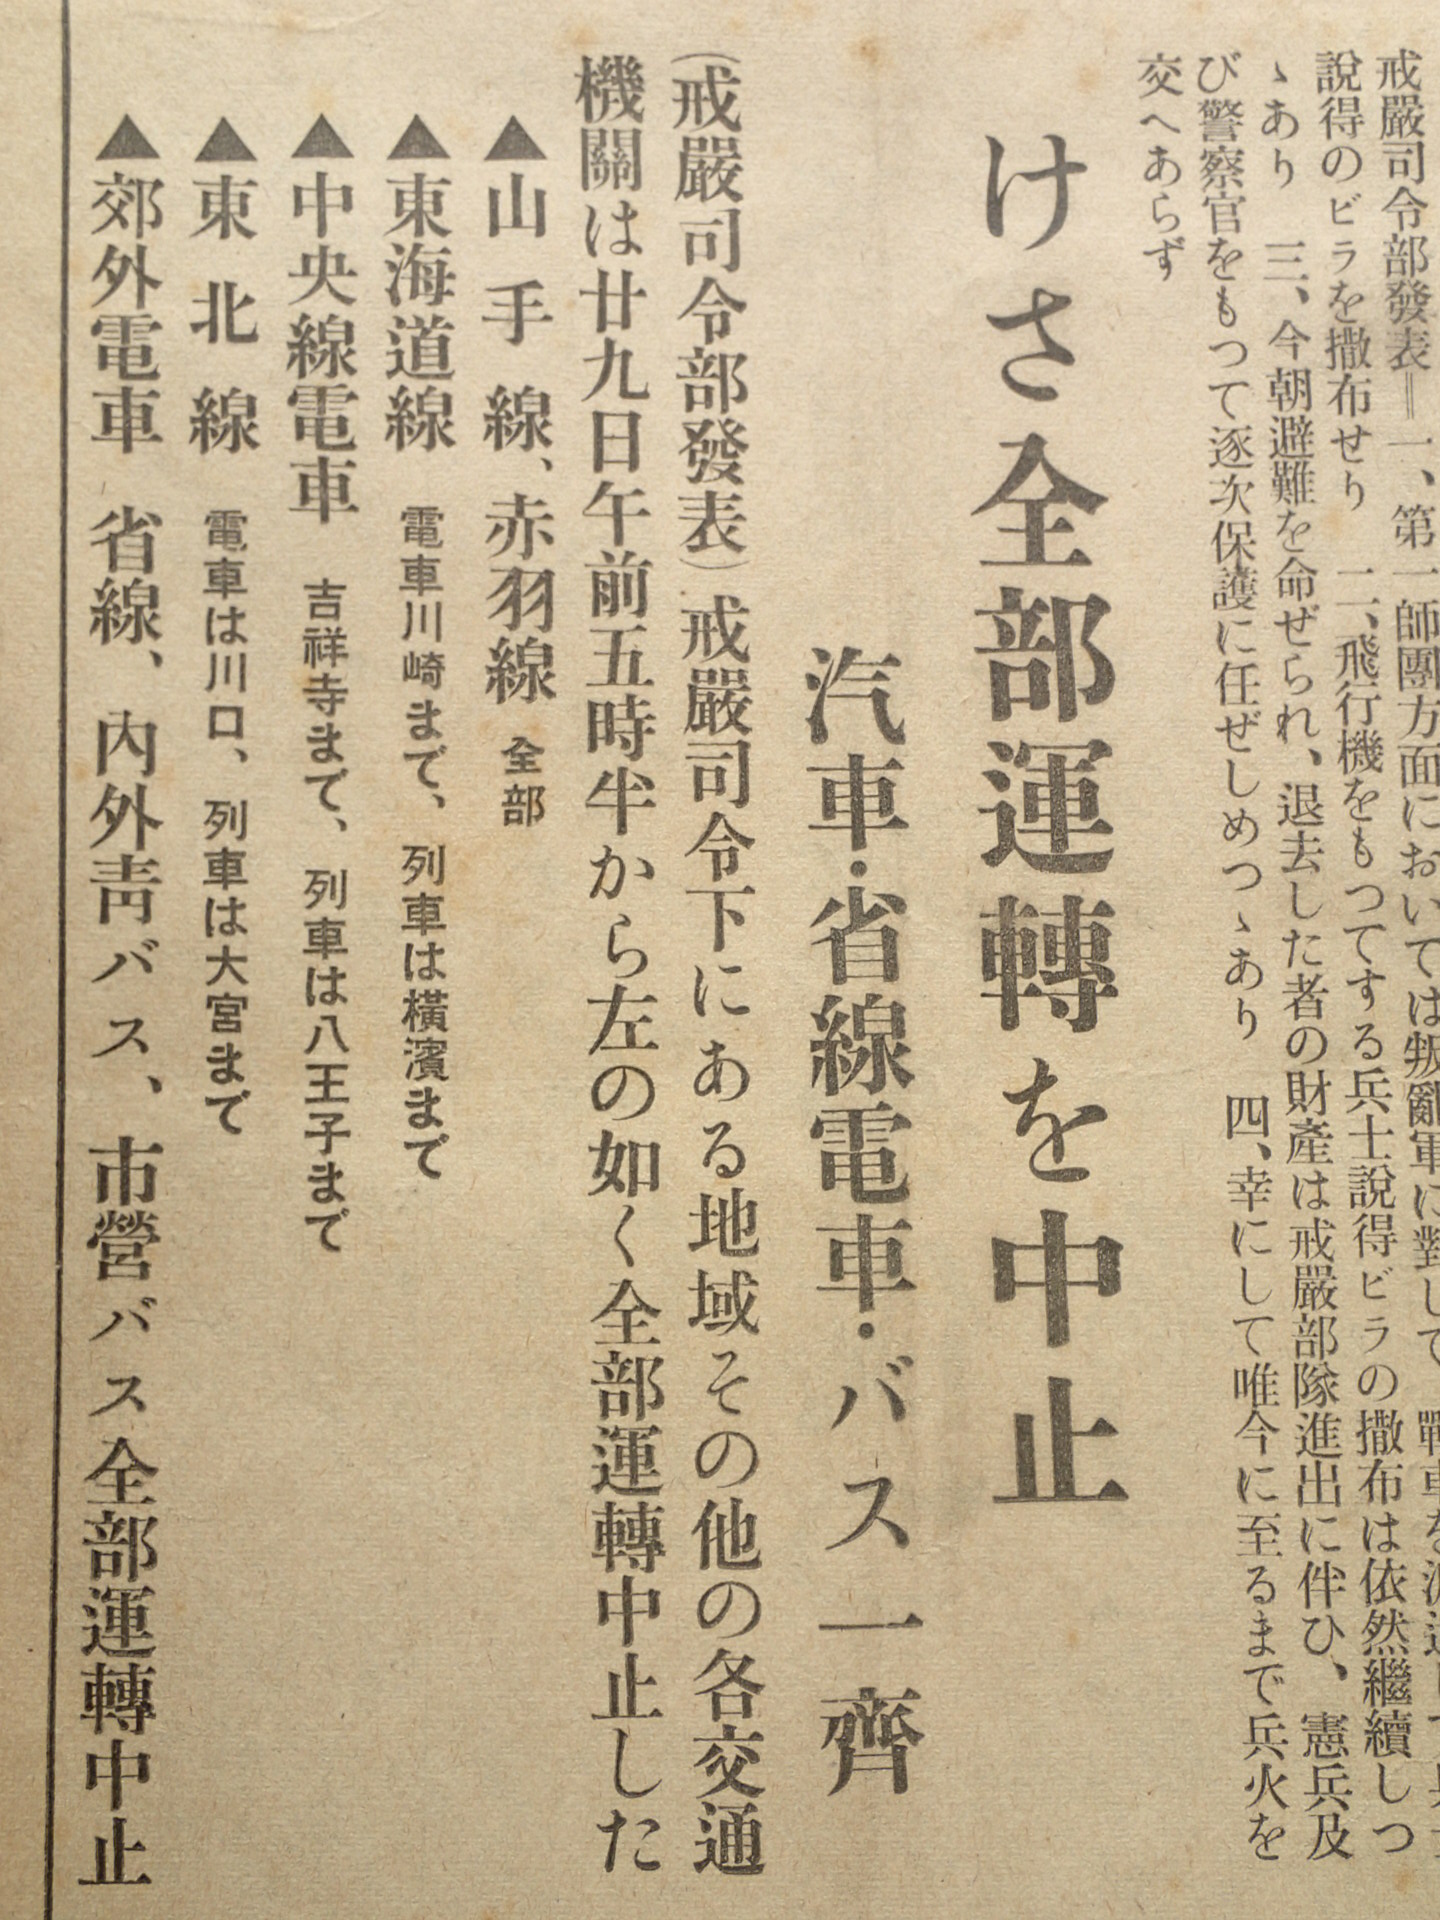 戒嚴司令部發表＝一、第一師團方面においては叛亂軍に對して
説得のビラを撒布せり　二、飛行機をもつてする兵士説得ビラの撒布は依然繼續しつ
ゝあり　三、今朝避難を命ぜられ、退去した者の財產は戒嚴部隊進出に伴ひ、憲兵及
び警察官をもつて逐次保護に任ぜしめつゝあり　四、幸にして唯今に至るまで兵火を
交へあらず
けさ全部運轉を中止
汽車・省線電車・バス一齊
（戒嚴司令部發表）戒嚴司令下にある地域その他の各交通
機關は廿九日午前五時半から左の如く全部運轉中止した
▲山手線、赤羽線　全部
▲東海道線　電車川崎まで、列車は橫濱まで
▲中央線電車　吉祥寺まで、列車は八王子まで
▲東北線　電車は川口、列車は大宮まで
▲郊外電車　省線、內外靑バス、市營バス全部運轉中止